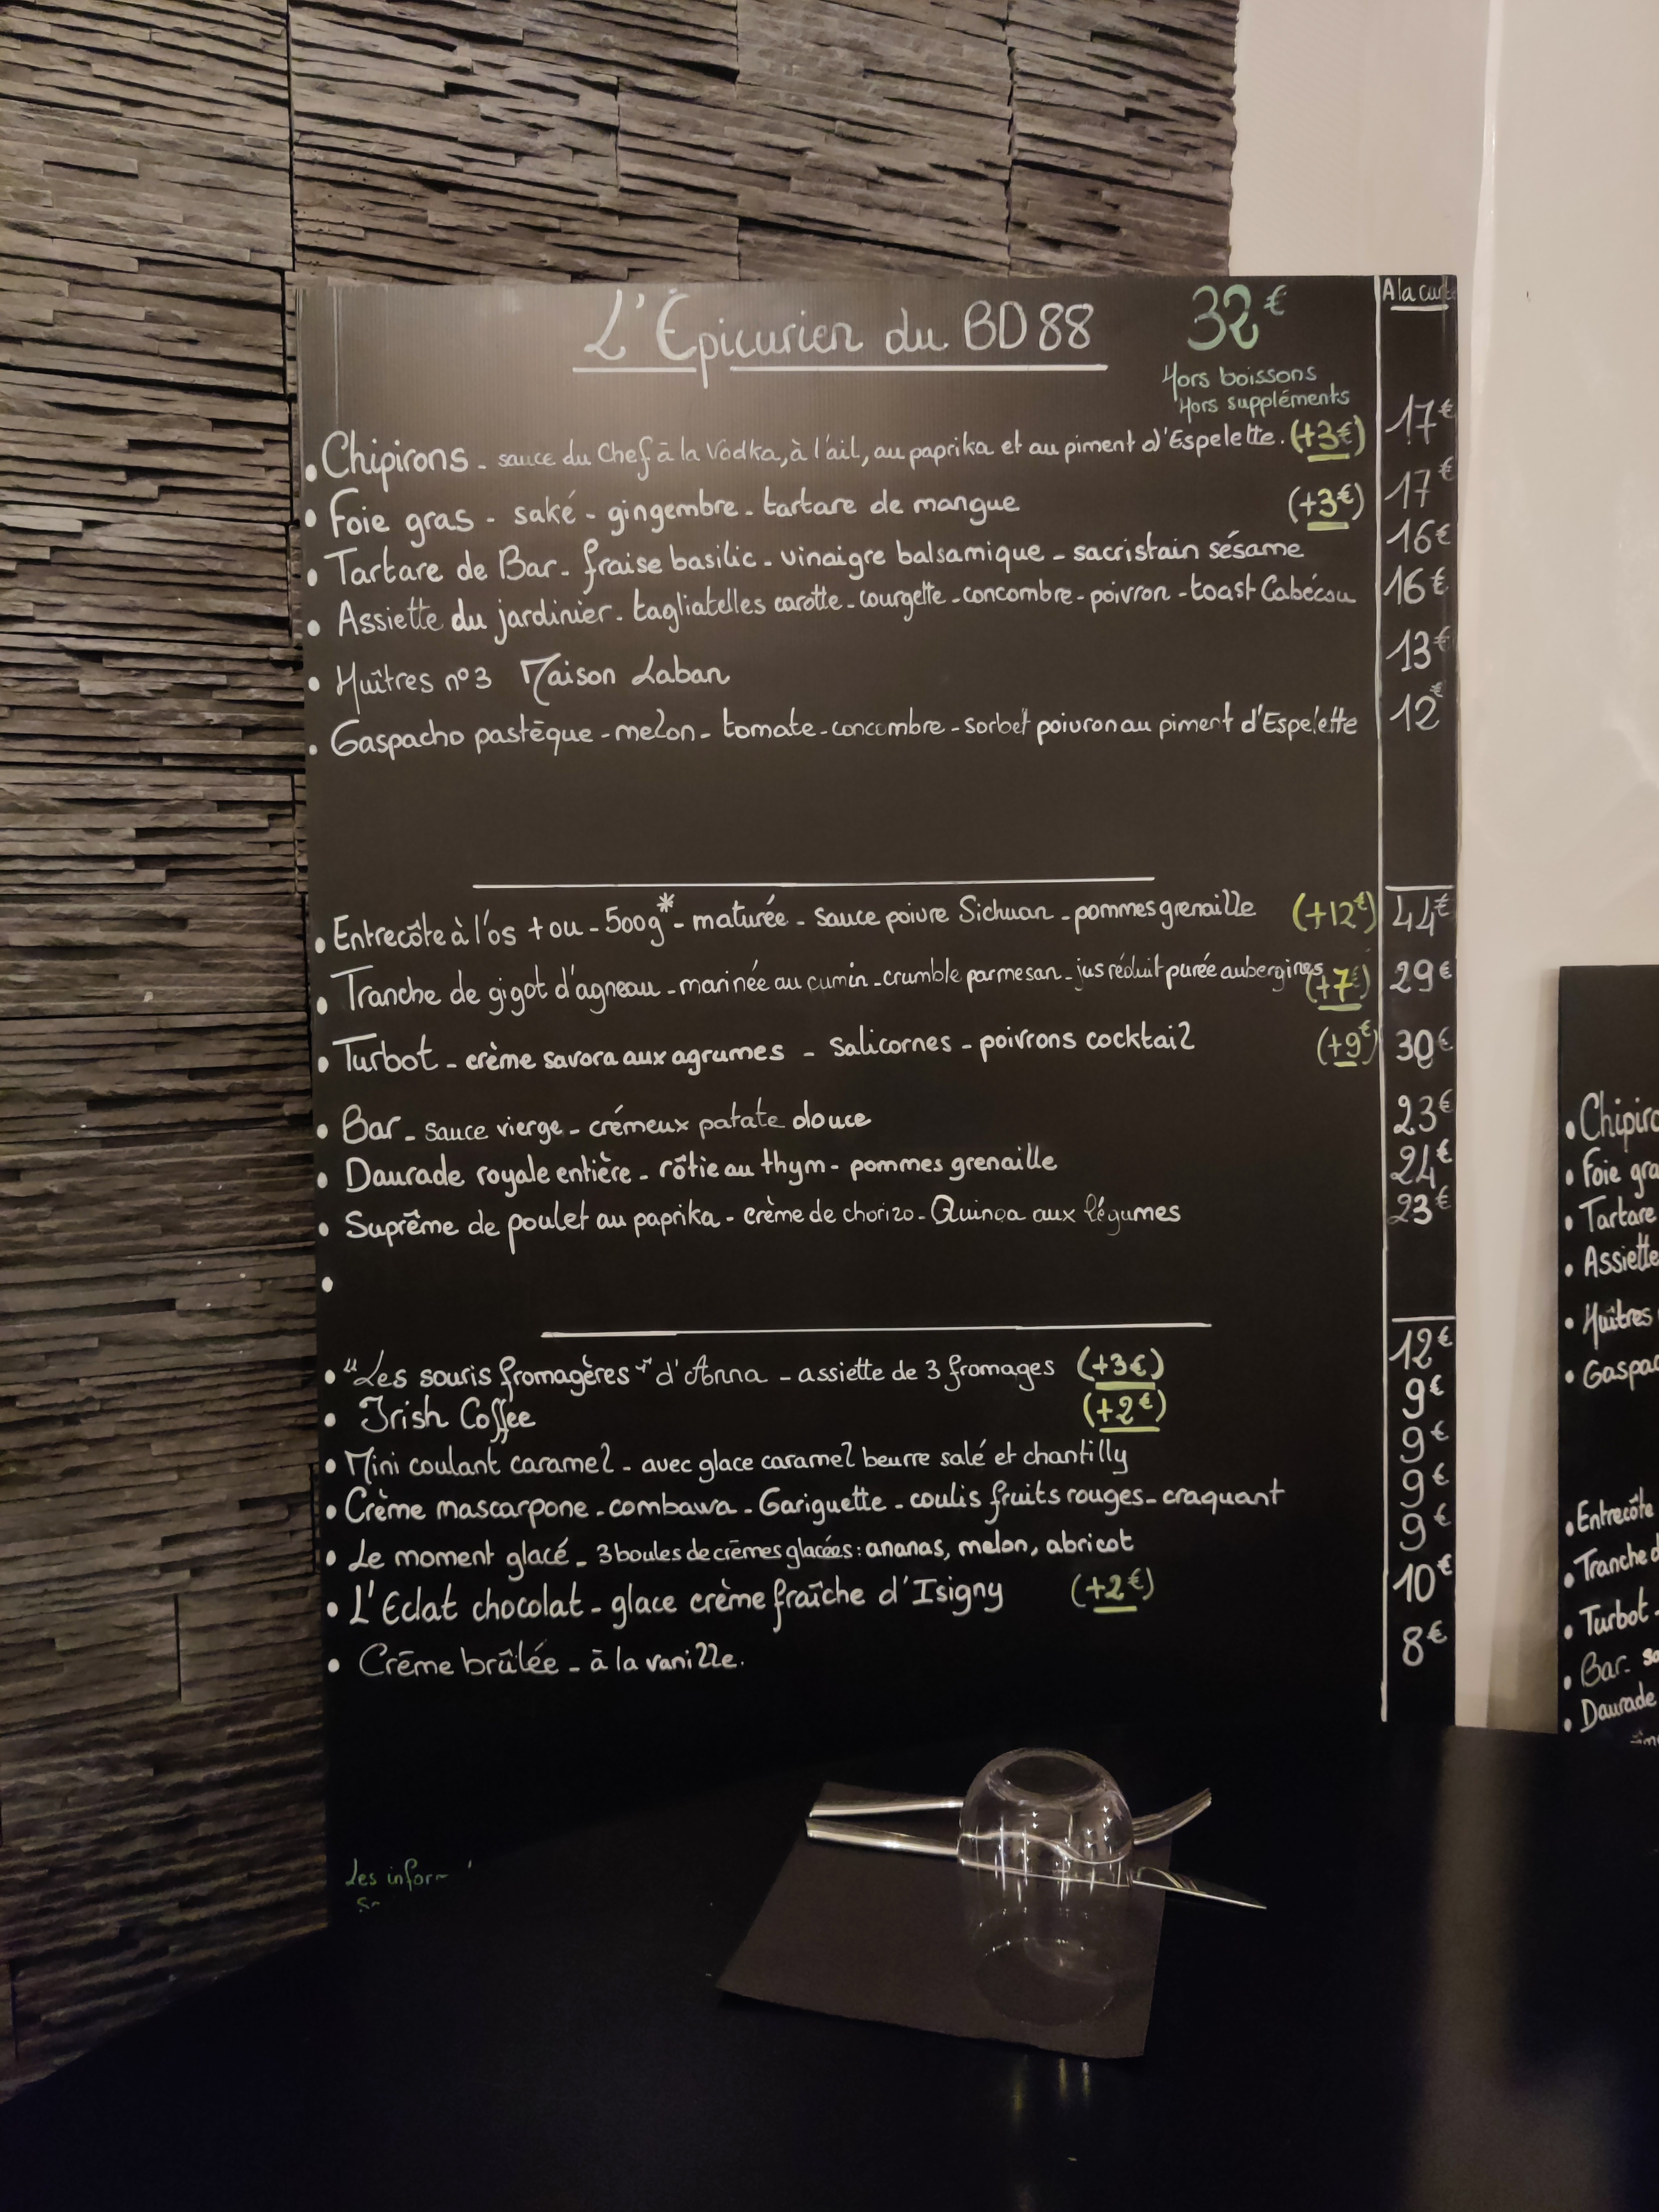 L'Épicurien du BD88 32€ A la carte
Hors boissons
Hors suppléments
• Chipirons - sauce du Chef à la Vodka, à l'ail, au paprika et au piment d'Espelette. (+3€) 17€
• Foie gras - saké - gingembre - tartare de mangue (+3€) 17€
• Tartare de Bar - fraise basilic - vinaigre balsamique - sacristain sésame 16€
• Assiette du jardinier - tagliatelles carotte - courgette - concombre - poivron - toast Cabécou 16€
• Huîtres n°3 Maison Laban 13€
• Gaspacho pastèque - melon - tomate - concombre - sorbet poivron au piment d'Espelette 12€
• Entrecôte à l'os + ou - 500g* - maturée - sauce poivre Sichuan - pommes grenaille (+12€) 44€
• Tranche de gigot d'agneau - marinée au cumin - crumble parmesan - jus réduit purée aubergines (+7€) 29€
• Turbot - crème savora aux agrumes - salicornes - poivrons cocktail (+9€) 30€
• Bar - sauce vierge - crémeux patate douce 23€
• Daurade royale entière - rôtie au thym - pommes grenaille 24€
• Suprême de poulet au paprika - crème de chorizo - Quinoa aux légumes 23€
•
• "Les souris fromagères" d'Anna - assiette de 3 fromages (+3€) 12€
• Irish Coffee (+2€) 9€
• Mini coulant caramel - avec glace caramel beurre salé et chantilly 9€
• Crème mascarpone - combawa - Gariguette - coulis fruits rouges - craquant 9€
• Le moment glacé - 3 boules de crèmes glacées : ananas, melon, abricot 9€
• L'Eclat chocolat - glace crème fraîche d'Isigny (+2€) 10€
• Crème brûlée - à la vanille. 8€
Les
• Chipiro
• Foie gra
• Tartare
• Assiette
• Huîtres
• Gaspac
• Entrecôte
• Tranche d
• Turbot -
• Bar - so
• Daurade